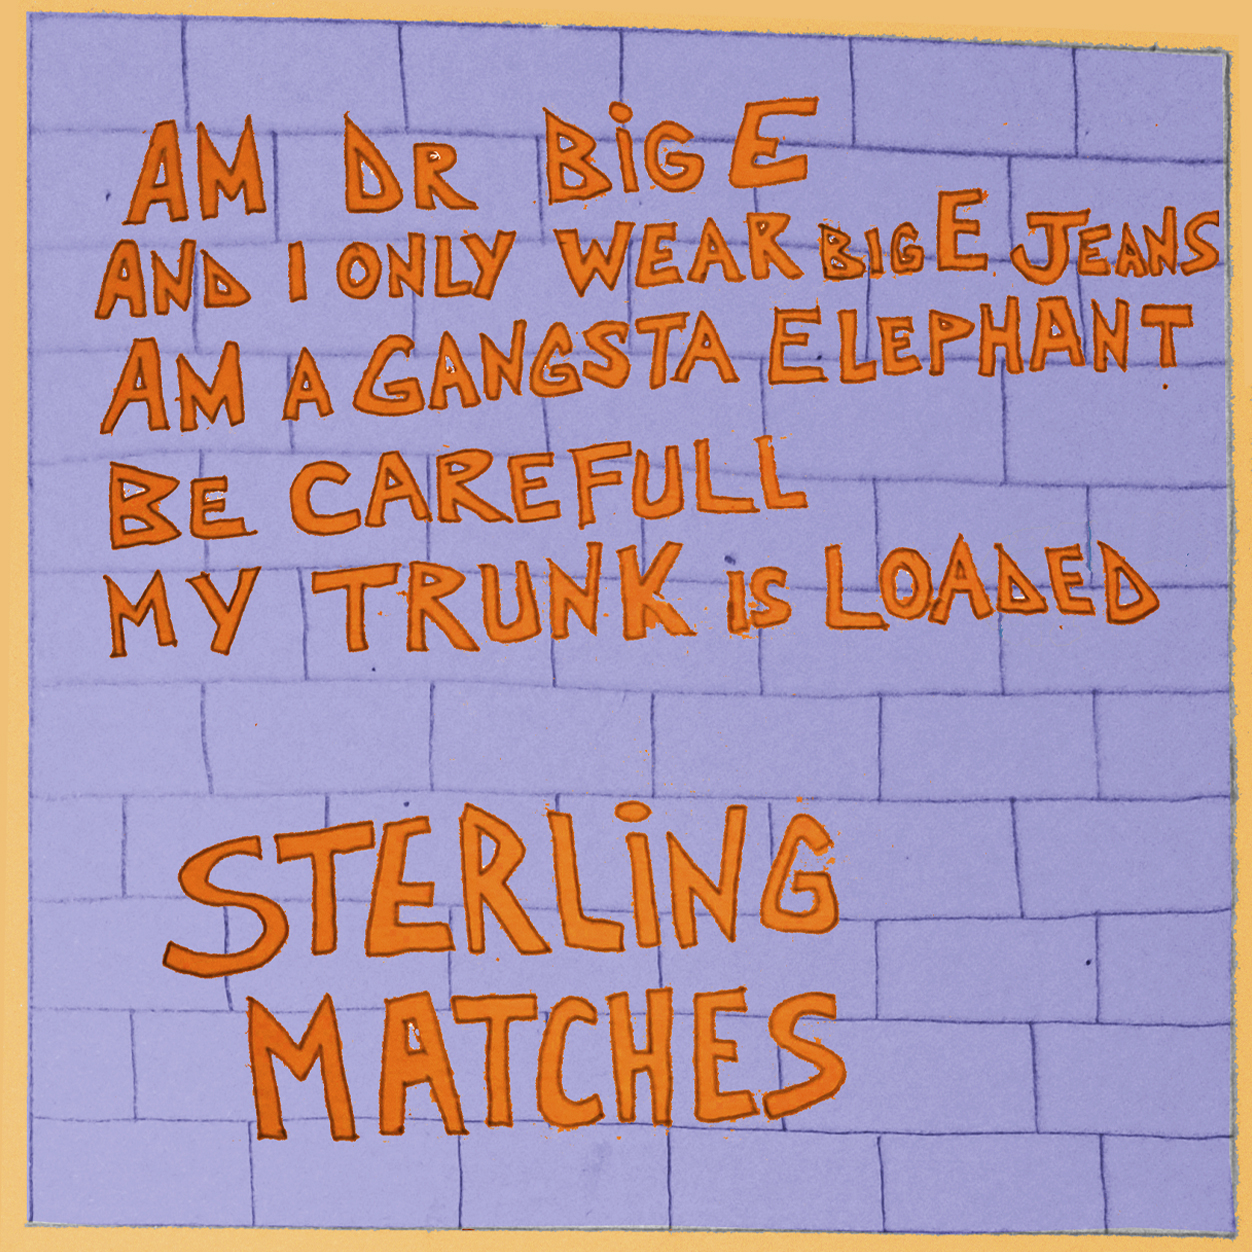 AM DR BiG E
AND I ONLY WEAR BIG E JEANS
AM A GANGSTA ELEPHANT
BE CAREFULL
MY TRUNK iS LOADED
STERLiNG
MATCHES